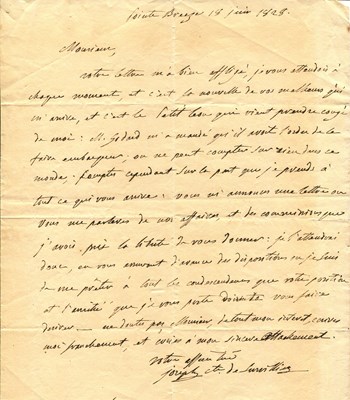 Pointe Breeze 18 juin 1828.
Monsieur,
votre lettre m'a bien affligé, je vous attendois à
chaque moment, et c'est la nouvelle de vos malheurs qui
m'arrive, et c'est le petit Leon qui vient prendre congé
de moi: M. Godard m'a mandé qu'il avoit l'ordre de le
faire embarquer, on ne peut compter sur rien dans ce
monde. Comptez cependant sur la part que je prends à
tout ce qui vous arrive: vous m'annoncez une lettre ou
vous me parlerez de vos affaires, et des commissions que
j'avois pris la liberté de vous donner: je l'attendrai
donc, en vous assurant d'avance des dispositions ou je suis
de me prêter à tout les condescendances que votre position
et l'amitié que je vous porte doivent vous faire
desirer. ne doutez pas, Monsieur, de tout mon interet,
moi franchement, et croiez à mon sincere attachement.
votre affectionné
Joseph cte de Survilliers